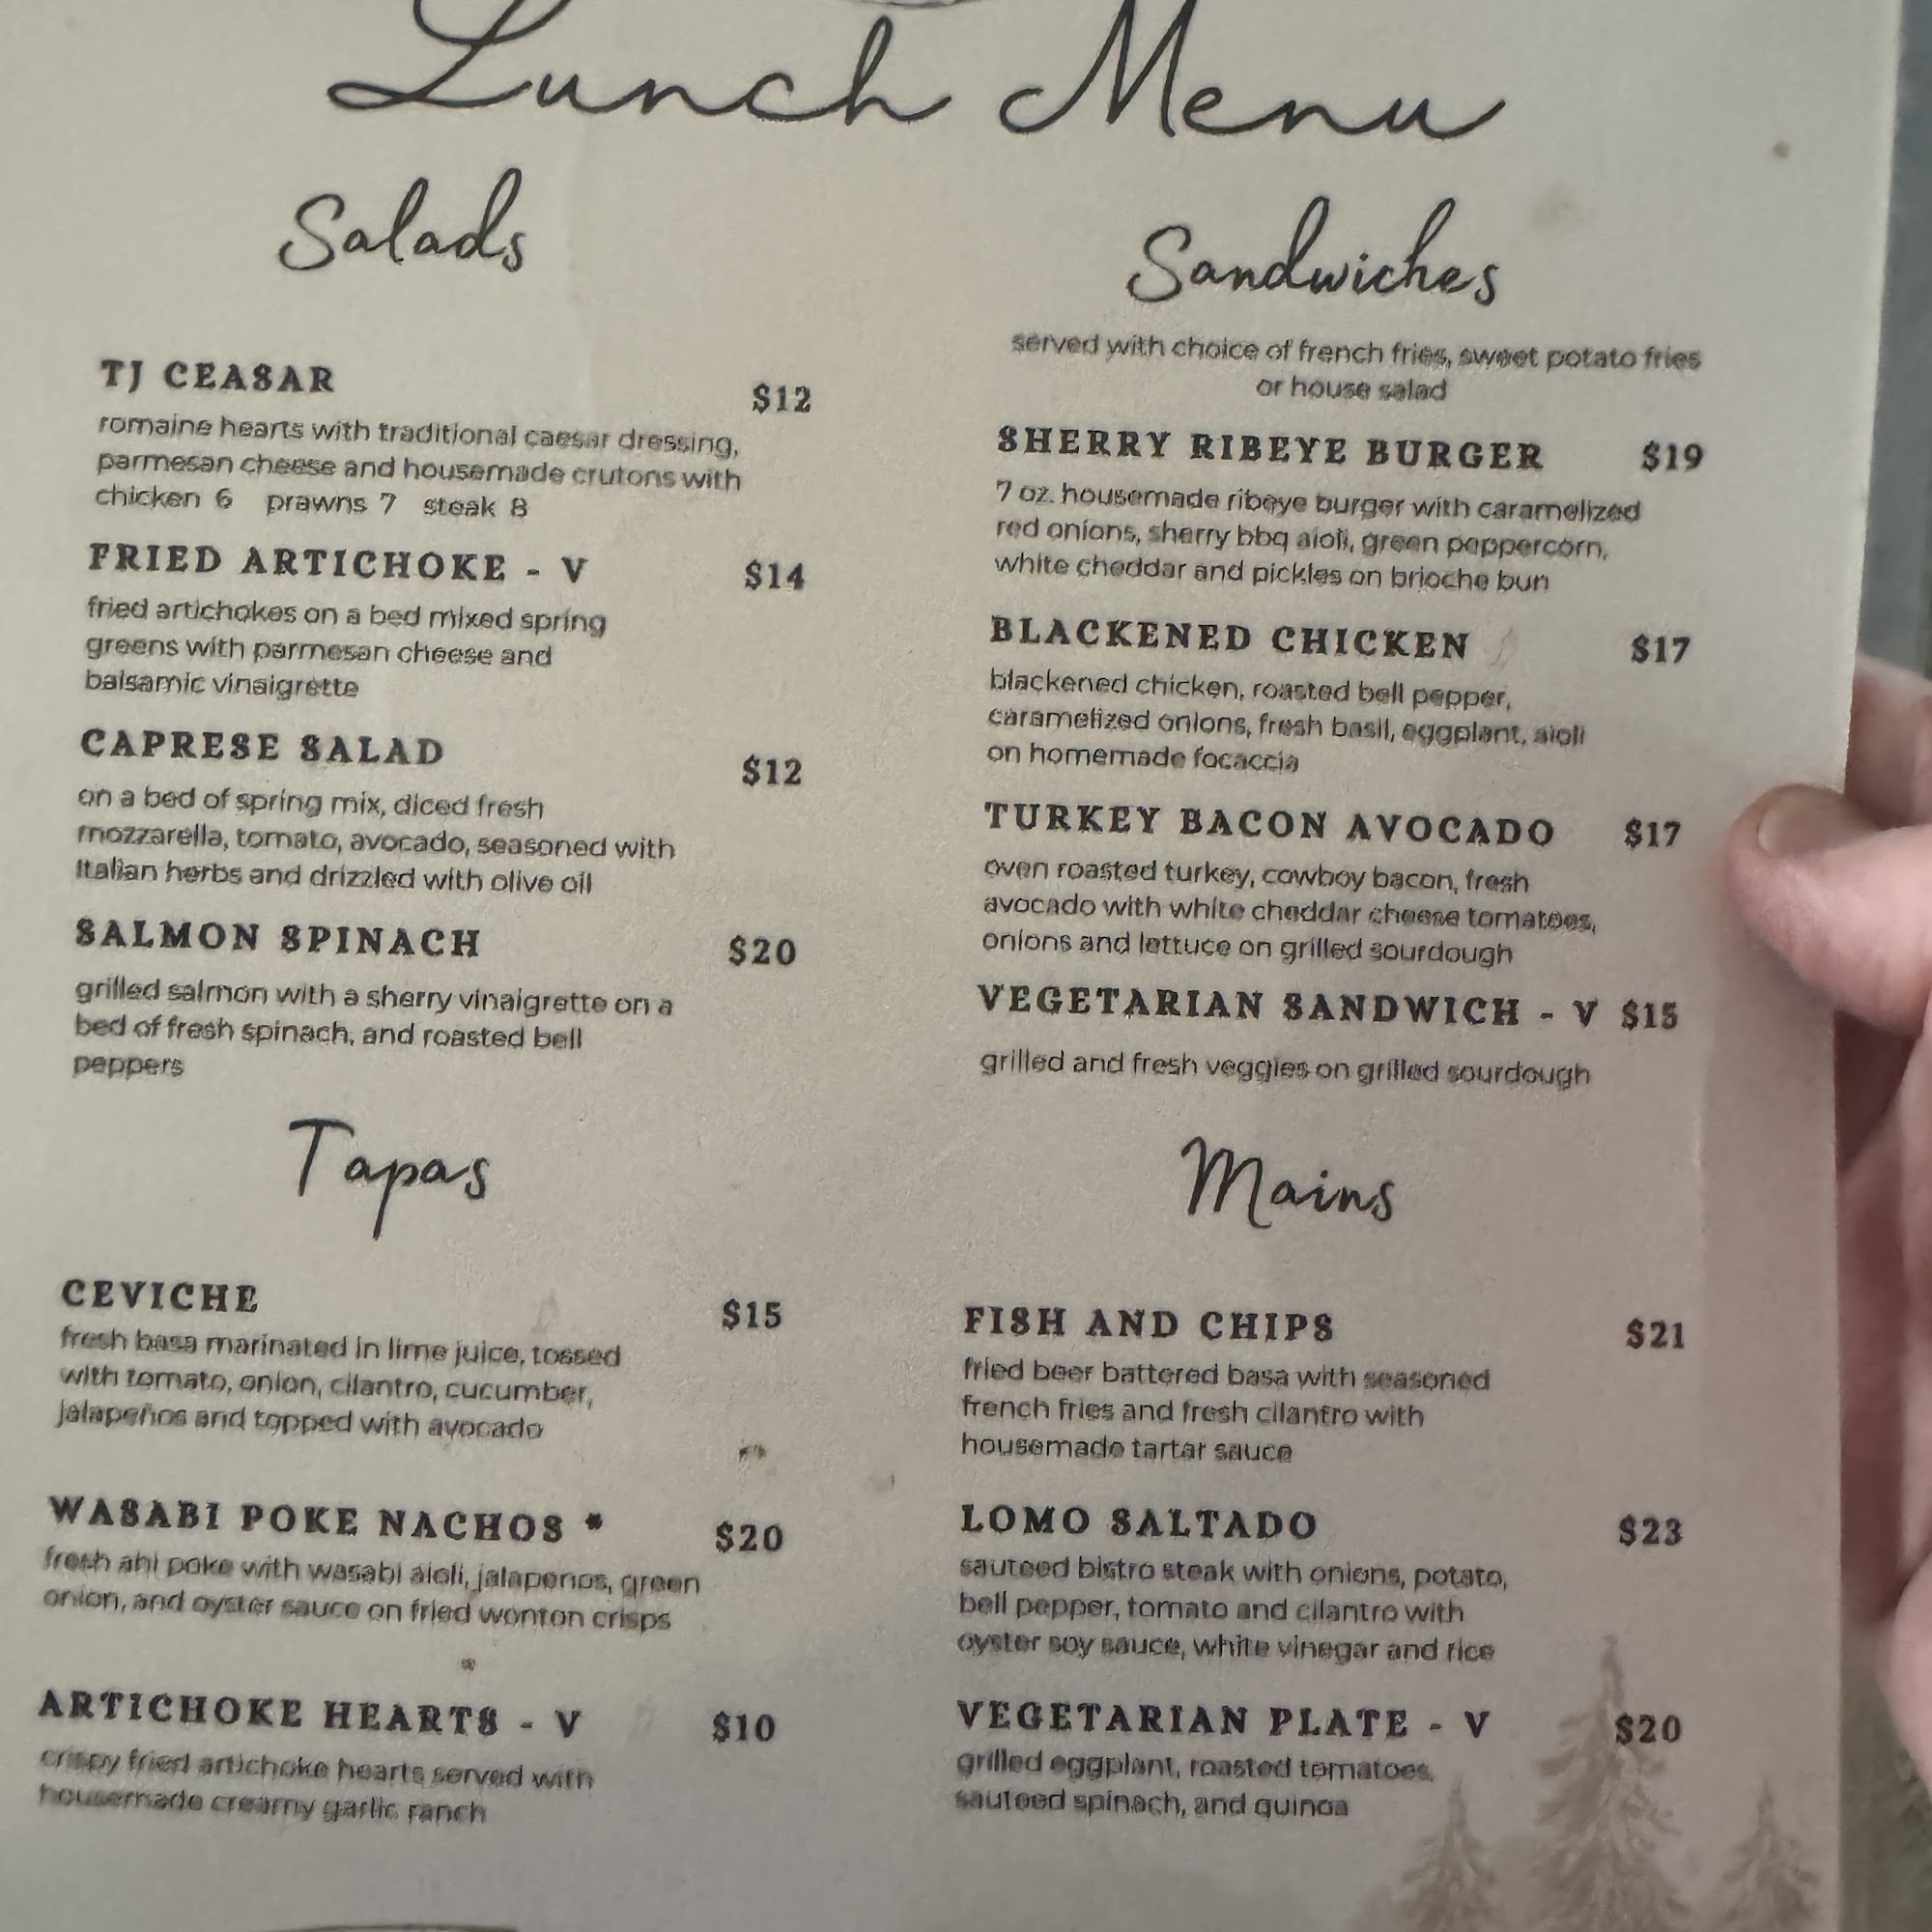 Lunch Menu
Salads
TJ CEASAR $12
romaine hearts with traditional caesar dressing,
parmesan cheese and housemade crutons with
chicken 6 prawns 7 steak 8
FRIED ARTICHOKE - V $14
fried artichokes on a bed mixed spring
greens with parmesan cheese and
balsamic vinaigrette
CAPRESE SALAD $12
on a bed of spring mix, diced fresh
mozzarella, tomato, avocado, seasoned with
Italian herbs and drizzled with olive oil
SALMON SPINACH $20
grilled salmon with a sherry vinaigrette on a
bed of fresh spinach, and roasted bell
peppers
Tapas
CEVICHE $15
fresh basa marinated in lime juice, tossed
with tomato, onion, cilantro, cucumber,
jalapeños and topped with avocado
WASABI POKE NACHOS * $20
fresh ahi poke with wasabi aioli, jalapenos, green
onion, and oyster sauce on fried wonton crisps
ARTICHOKE HEARTS - V $10
crispy fried artichoke hearts served with
housemade creamy garlic ranch
Sandwiches
served with choice of french fries, sweet potato fries
or house salad
SHERRY RIBEYE BURGER $19
7 oz. housemade ribeye burger with caramelized
red onions, sherry bbq aioli, green peppercorn,
white cheddar and pickles on brioche bun
BLACKENED CHICKEN $17
blackened chicken, roasted bell pepper,
caramelized onions, fresh basil, eggplant, aioli
on homemade focaccia
TURKEY BACON AVOCADO $17
oven roasted turkey, cowboy bacon, fresh
avocado with white cheddar cheese tomatoes,
onions and lettuce on grilled sourdough
VEGETARIAN SANDWICH - V $15
grilled and fresh veggies on grilled sourdough
Mains
FISH AND CHIPS $21
fried beer battered basa with seasoned
french fries and fresh cilantro with
housemade tartar sauce
LOMO SALTADO $23
sauteed bistro steak with onions, potato,
bell pepper, tomato and cilantro with
oyster soy sauce, white vinegar and rice
VEGETARIAN PLATE - V $20
grilled eggplant, roasted tomatoes,
sauteed spinach, and quinoa